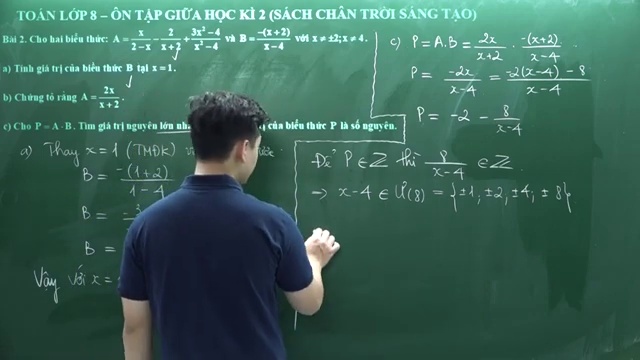 TOÁN LỚP 8 – ÔN TẬP GIỮA HỌC KÌ 2 (SÁCH CHÂN TRỜI SÁNG TẠO)
Bài 2. Cho hai biểu thức: A = x/(2−x) − 2/(x+2) + (3x²−4)/(x²−4) và B = −(x+2)/(x−4) với x ≠ ±2; x ≠ 4.
a) Tính giá trị của biểu thức B tại x = 1.
b) Chứng tỏ rằng A = 2x/(x+2).
c) Cho P = A · B. Tìm giá trị nguyên lớn của biểu thức P là số nguyên.
a) Thay x = 1 (TMĐK)
B = −(1+2)/(1−4)
B =
B =
Vậy với x =
c) P = A.B = 2x/(x+2) · −(x+2)/(x−4)
P = −2x/(x−4) = (−2(x−4) − 8)/(x−4)
P = −2 − 8/(x−4)
Để P ∈ ℤ thì 8/(x−4) ∈ ℤ
→ x−4 ∈ Ư(8) = {±1; ±2; ±4; ±8}